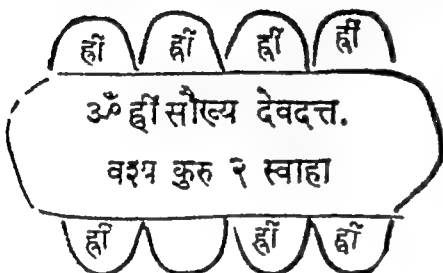 ह्रीं ह्रीं ह्रीं ह्रीं
ॐ ह्रीं सौख्य देवदत्त.
वश्य कुरु २ स्वाहा
ह्रीं ह्रीं ह्रीं